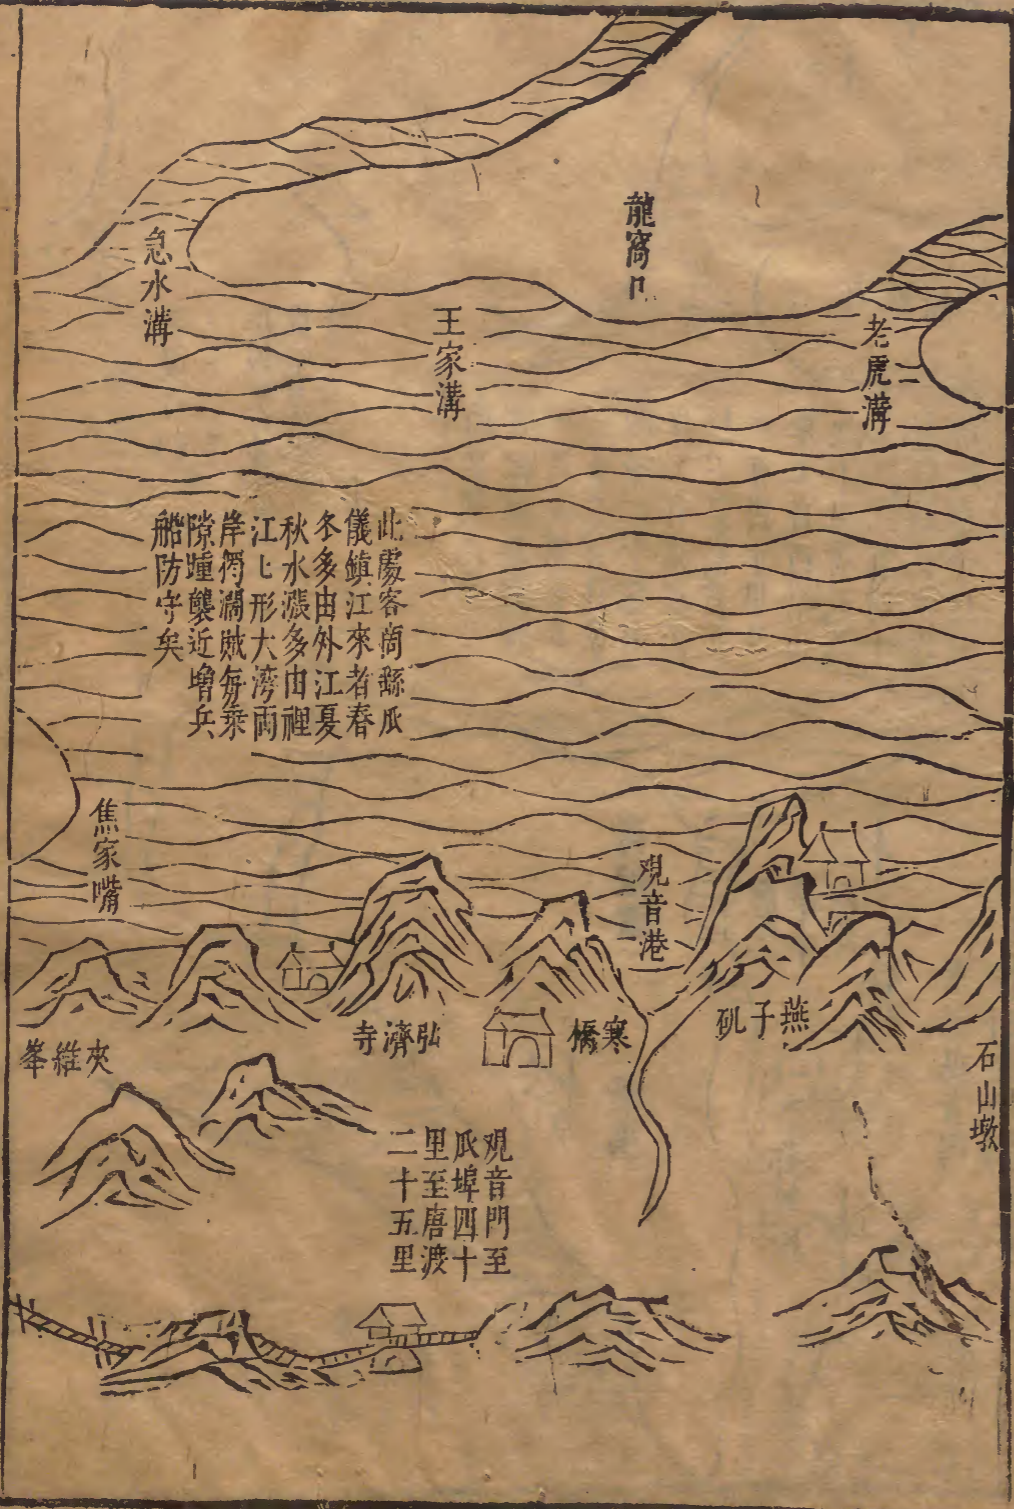 龍窩口
老虎溝
王家溝
急水溝
此處客商繇瓜
儀鎮江來者春
冬多由外江夏
秋水漲多由裡
江七形大灣兩
岸獨濶賊每乘
隙踵襲近增兵
船防守矣
觀音港
焦家嘴
燕子矶
寒橋
弘濟寺
夾維峯
石山墩
观音門至
瓜埠四十
里至唐渡
二十五里